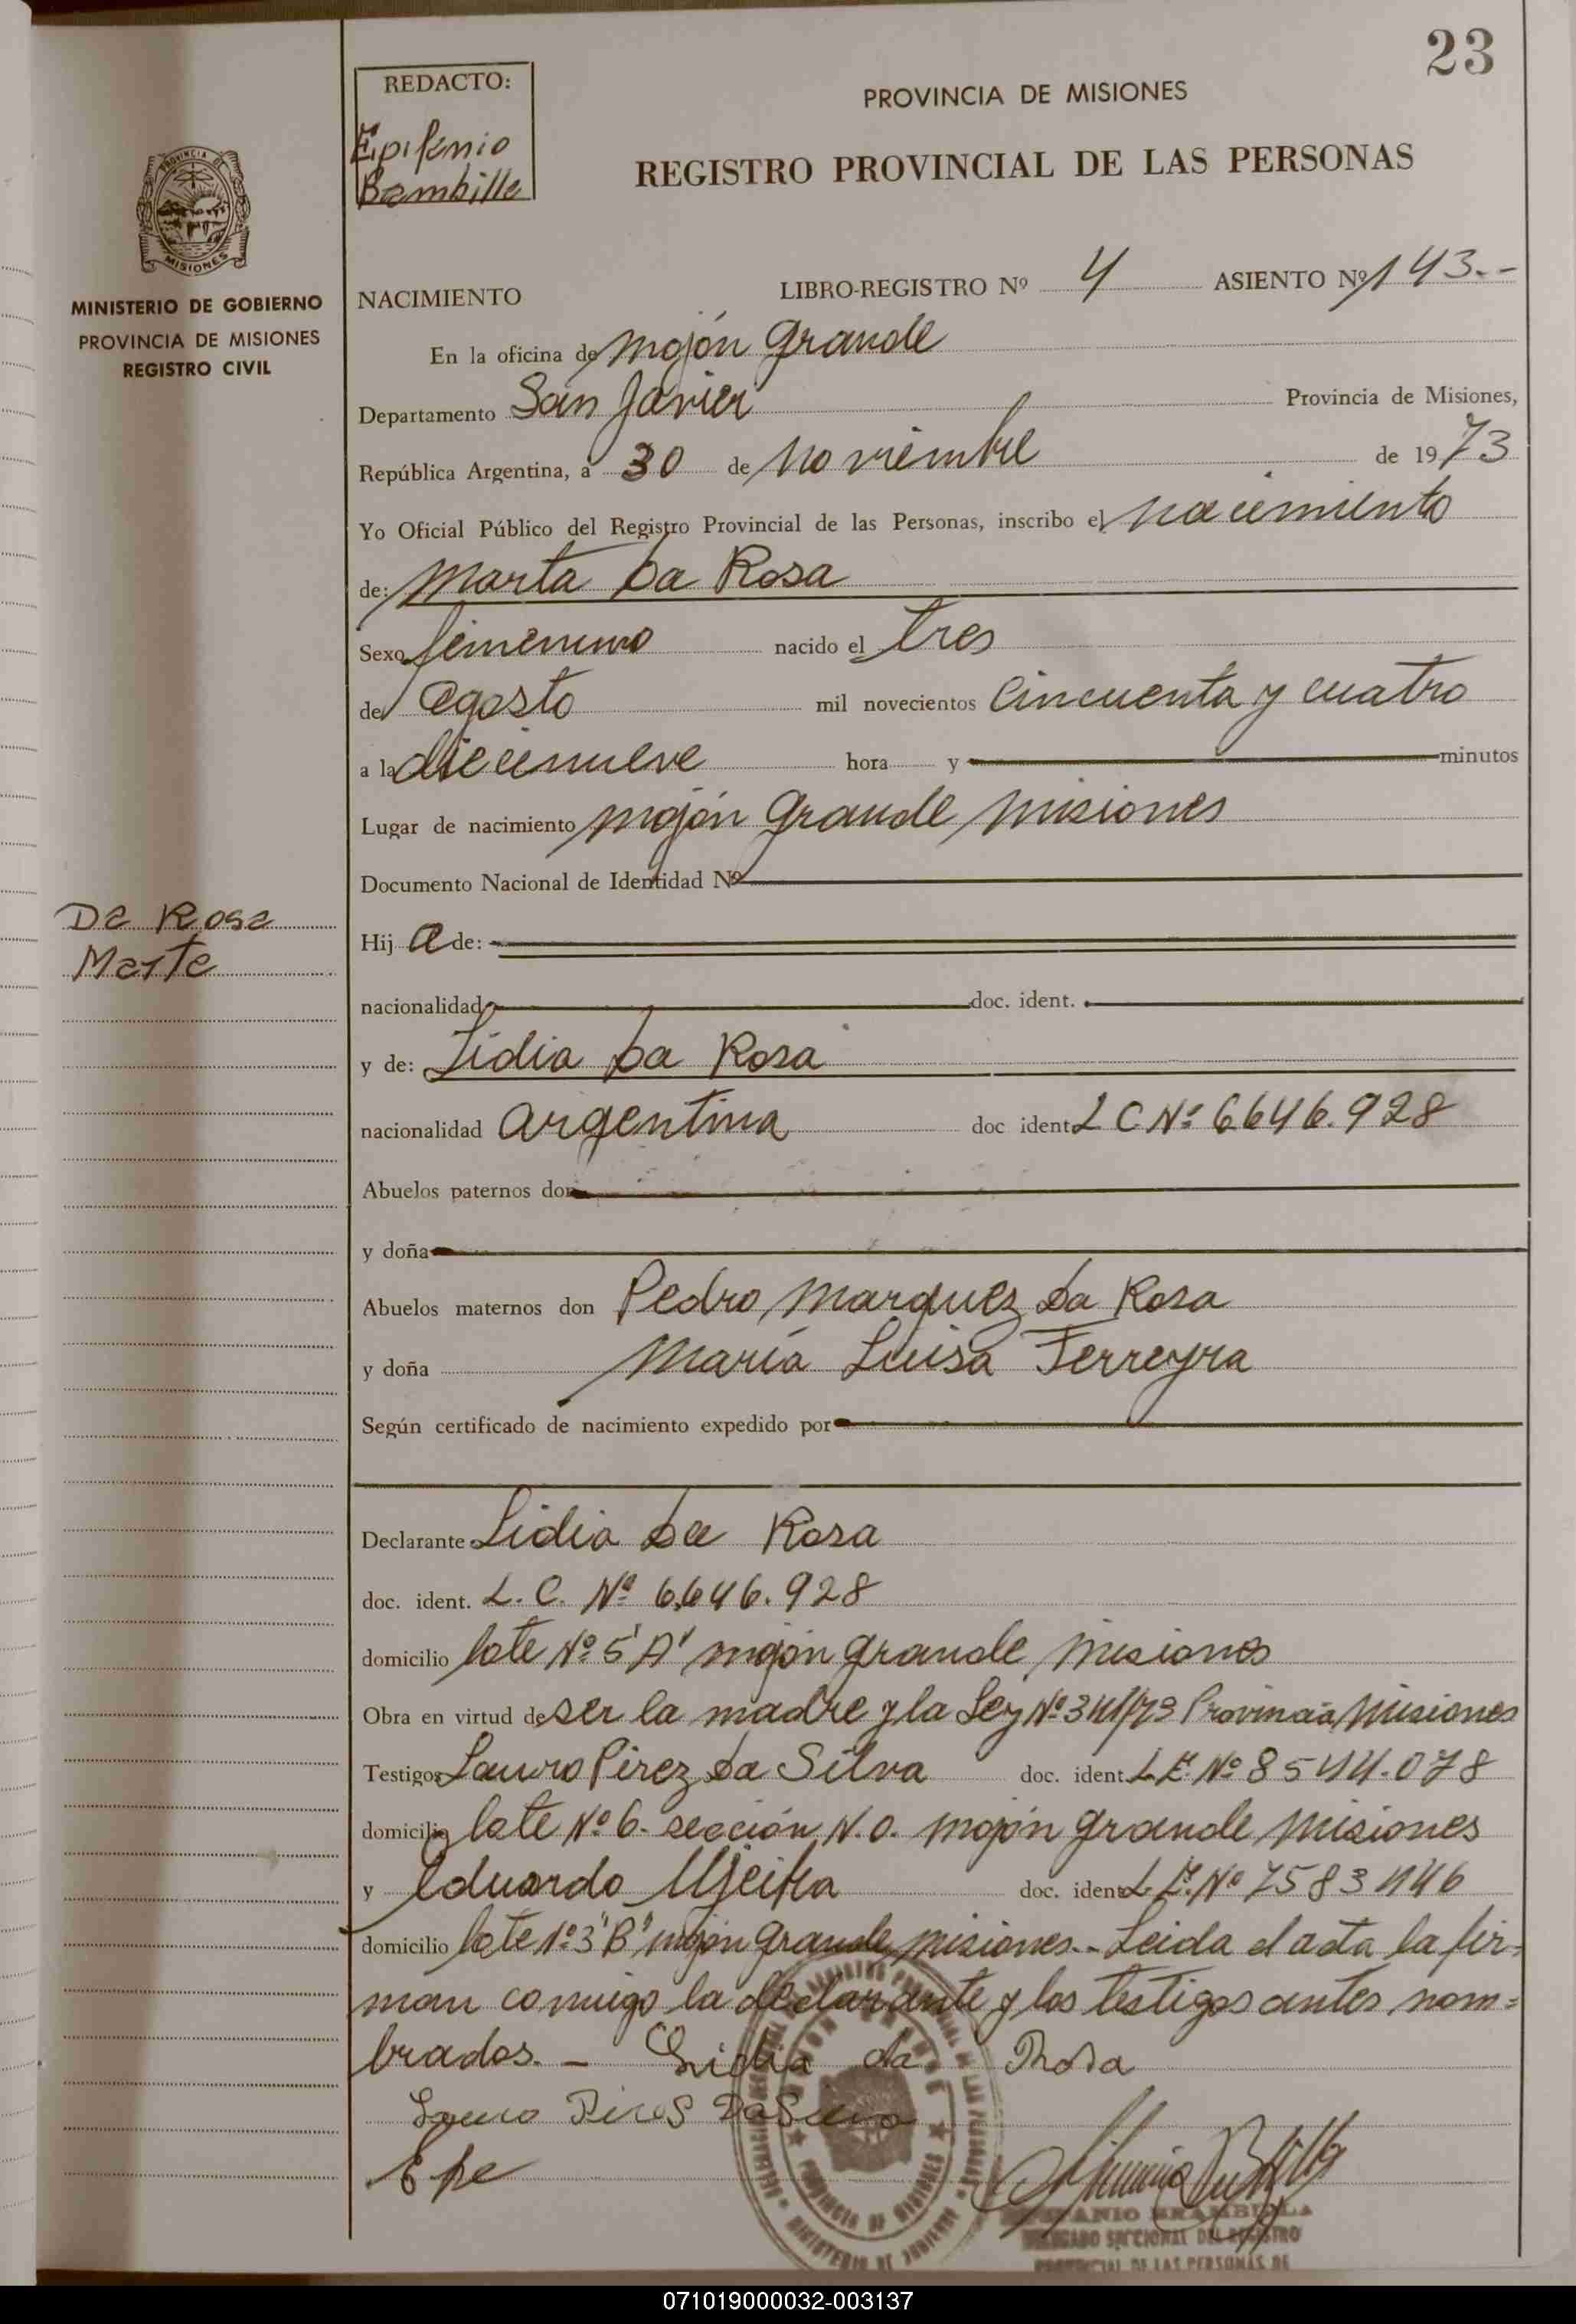 23
REDACTO:
Epifenio
Bambille
PROVINCIA DE MISIONES
REGISTRO PROVINCIAL DE LAS PERSONAS
PROVINCIA DE
MISIONES
MINISTERIO DE GOBIERNO
PROVINCIA DE MISIONES
REGISTRO CIVIL
NACIMIENTO LIBRO-REGISTRO Nº 4 ASIENTO Nº 143.--
En la oficina de Mojón Grande
Departamento San Javier Provincia de Misiones,
República Argentina, a 30 de Noviembre de 1973
Yo Oficial Público del Registro Provincial de las Personas, inscribo el nacimiento
de: Marta Da Rosa
Sexo femenino nacido el tres
de agosto mil novecientos cincuenta y cuatro
a la diecinueve hora y minutos
Lugar de nacimiento Mojón Grande Misiones
Documento Nacional de Identidad Nº
Da Rosa
Marta
Hij a de:
nacionalidad doc. ident.
y de: Lidia Da Rosa
nacionalidad argentina doc ident L C Nº 6646.928
Abuelos paternos don
y doña
Abuelos maternos don Pedro Marquez Da Rosa
y doña María Luisa Ferreyra
Según certificado de nacimiento expedido por
Declarante Lidia Da Rosa
doc. ident. L. C. Nº 6.646.928
domicilio lote Nº 5 "A" Mojón Grande Misiones
Obra en virtud de ser la madre y la Ley Nº 341/73 Provincia Misiones
Testigos Lauro Pirez Da Silva doc. ident L.E. Nº 8544.078
domicilio lote Nº 6- sección N.O. Mojón Grande Misiones
y Eduardo doc. ident L.E. Nº 7583446
domicilio lote Nº 3 "B" Mojón Grande Misiones.- Leida el acta la fir=
man conmigo la declarante y los testigos antes nom=
brados. - Lidia da Rosa
Lauro Pires DaSilva
BRAMBILLA
DEL REGISTRO
DE LAS PERSONAS DE
PROVINCIA DE MISIONES
071019000032-003137